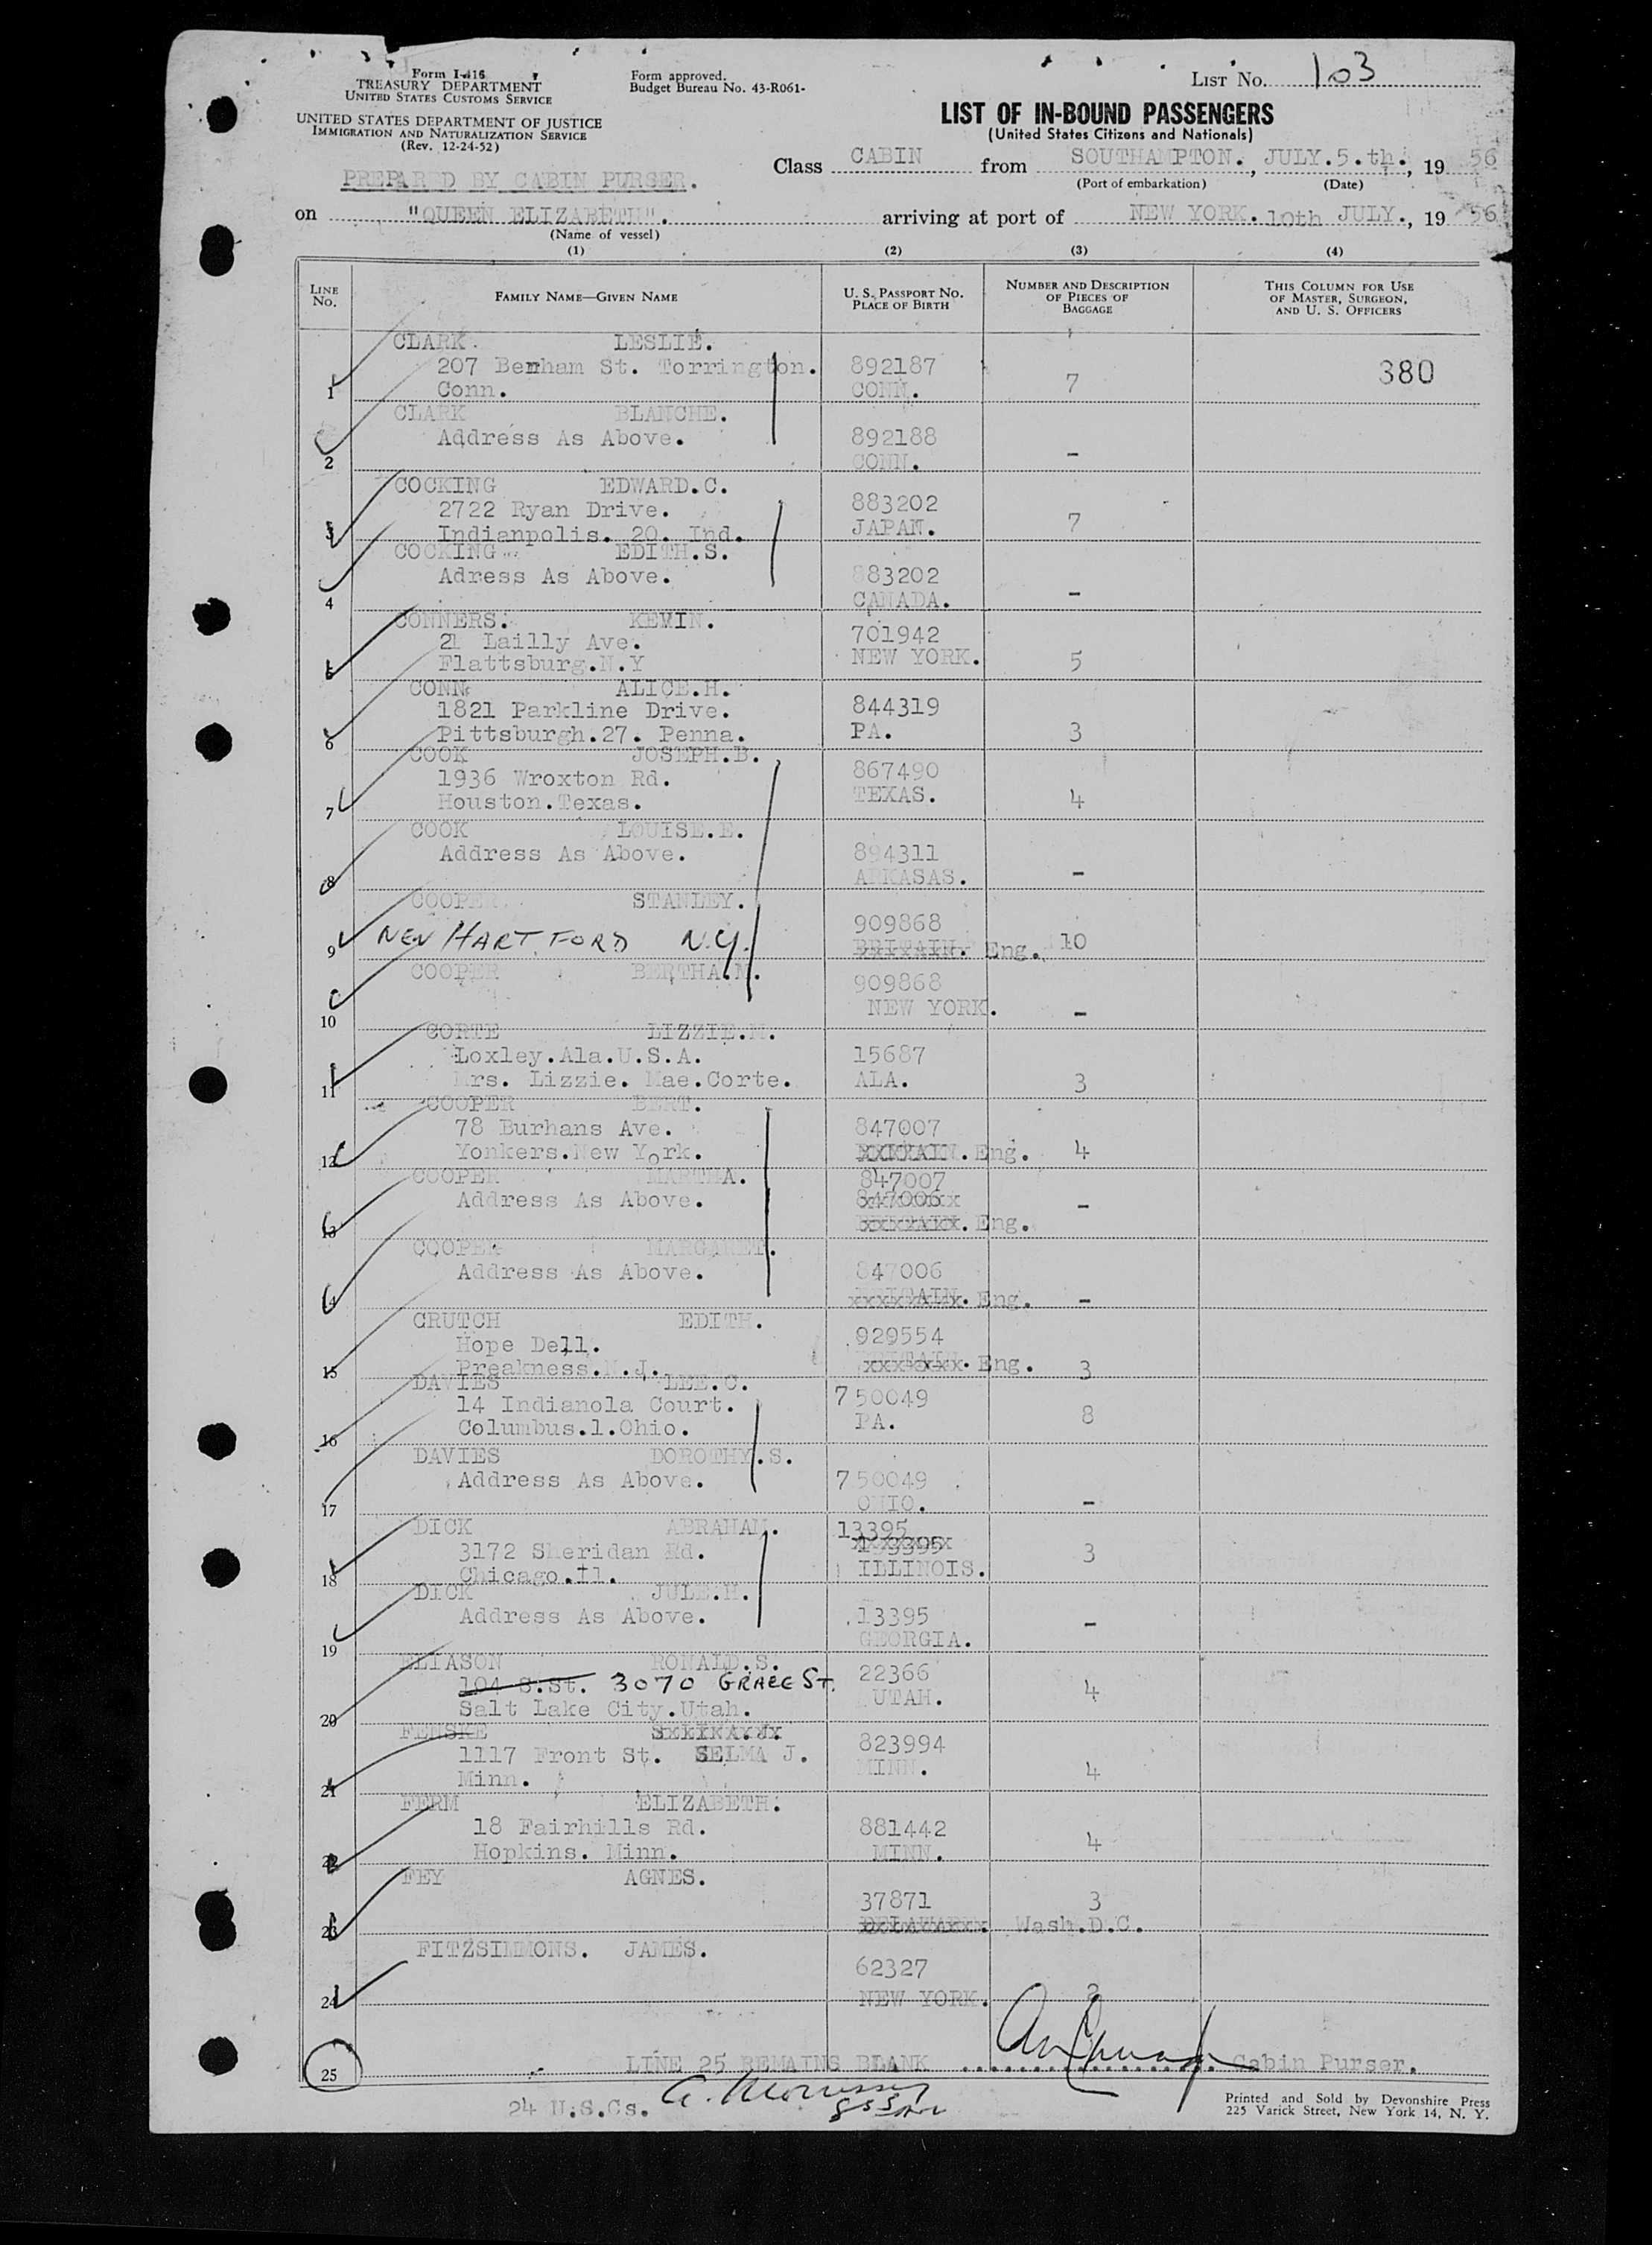 Form I-416
TREASURY DEPARTMENT
UNITED STATES CUSTOMS SERVICE
UNITED STATES DEPARTMENT OF JUSTICE
IMMIGRATION AND NATURALIZATION SERVICE
(Rev. 12-24-52)
Form approved.
Budget Bureau No. 43-R061-
LIST No. 103
LIST OF IN-BOUND PASSENGERS
(United States Citizens and Nationals)
Class CABIN from SOUTHAMPTON., JULY.5.th., 19 56
(Port of embarkation) (Date)
PREPARED BY CABIN PURSER.
on "QUEEN ELIZABETH". arriving at port of NEW YORK. 10th JULY., 19 56
(Name of vessel)
(1) (2) (3) (4)
LINE No. FAMILY NAME—GIVEN NAME U. S. PASSPORT NO. PLACE OF BIRTH NUMBER AND DESCRIPTION OF PIECES OF BAGGAGE THIS COLUMN FOR USE OF MASTER, SURGEON, AND U. S. OFFICERS
CLARK. LESLIE.
207 Benham St. Torrington. 892187 380
1 Conn. CONN. 7
CLARK BLANCHE.
Address As Above. 892188
2 CONN. -
COCKING EDWARD.C.
2722 Ryan Drive. 883202
3 Indianpolis. 20. Ind. JAPAN. 7
COCKING EDITH.S.
Adress As Above. 883202
4 CANADA. -
CONNERS. KEVIN.
21 Lailly Ave. 701942
5 Flattsburg.N.Y NEW YORK. 5
CONN ALICE.H.
1821 Parkline Drive. 844319
6 Pittsburgh.27. Penna. PA. 3
COOK JOSEPH.B.
1936 Wroxton Rd. 867490
7 Houston.Texas. TEXAS. 4
COOK LOUISE.E.
Address As Above. 894311
8 ARKASAS. -
COOPER. STANLEY.
909868
9 NEW HARTFORD N.Y. BRITAIN. Eng. 10
COOPER BERTHA.M.
909868
10 NEW YORK. -
CORTE LIZZIE.M.
Loxley.Ala.U.S.A. 15687
11 Mrs. Lizzie. Mae.Corte. ALA. 3
COOPER BERT.
78 Burhans Ave. 847007
12 Yonkers.New York. BRITAIN. Eng. 4
COOPER MARTHA. 847007
Address As Above. 847006
13 BRITAIN. Eng. -
COOPER MARGARET.
Address As Above. 847006
14 BRITAIN. Eng. -
CRUTCH EDITH.
Hope Dell. 929554
15 Preakness.N.J. BRITAIN. Eng. 3
DAVIES LEE.C.
14 Indianola Court. 750049
16 Columbus.1.Ohio. PA. 8
DAVIES DOROTHY.S.
Address As Above. 750049
17 OHIO. -
DICK ABRAHAM. 13395
3172 Sheridan Rd. 3
18 Chicago.Il. ILLINOIS.
DICK JULE.H.
Address As Above. 13395
19 GEORGIA. -
ELIASON RONALD.S.
104 S.St. 3070 GRACE ST. 22366
20 Salt Lake City.Utah. UTAH. 4
FENSKE
1117 Front St. SELMA J. 823994
21 Minn. MINN. 4
FERM ELIZABETH.
18 Fairhills Rd. 881442
22 Hopkins. Minn. MINN. 4
FEY AGNES.
37871 3
23 DELAWARE. Wash.D.C.
FITZSIMMONS. JAMES.
62327
24 NEW YORK. 2
25 LINE 25 REMAINS BLANK Cabin Purser.
24 U.S.Cs.
Printed and Sold by Devonshire Press
225 Varick Street, New York 14, N. Y.